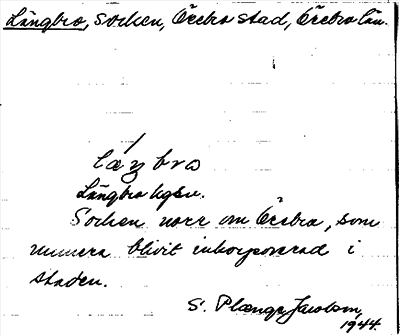 Längbro, Socken, Örebro stad, Örebro län.
Längbro kgsn.
Socken norr om Örebro, som
numera blivit inkorporerad i
staden.
S. Plænge Jacobson,
1944.